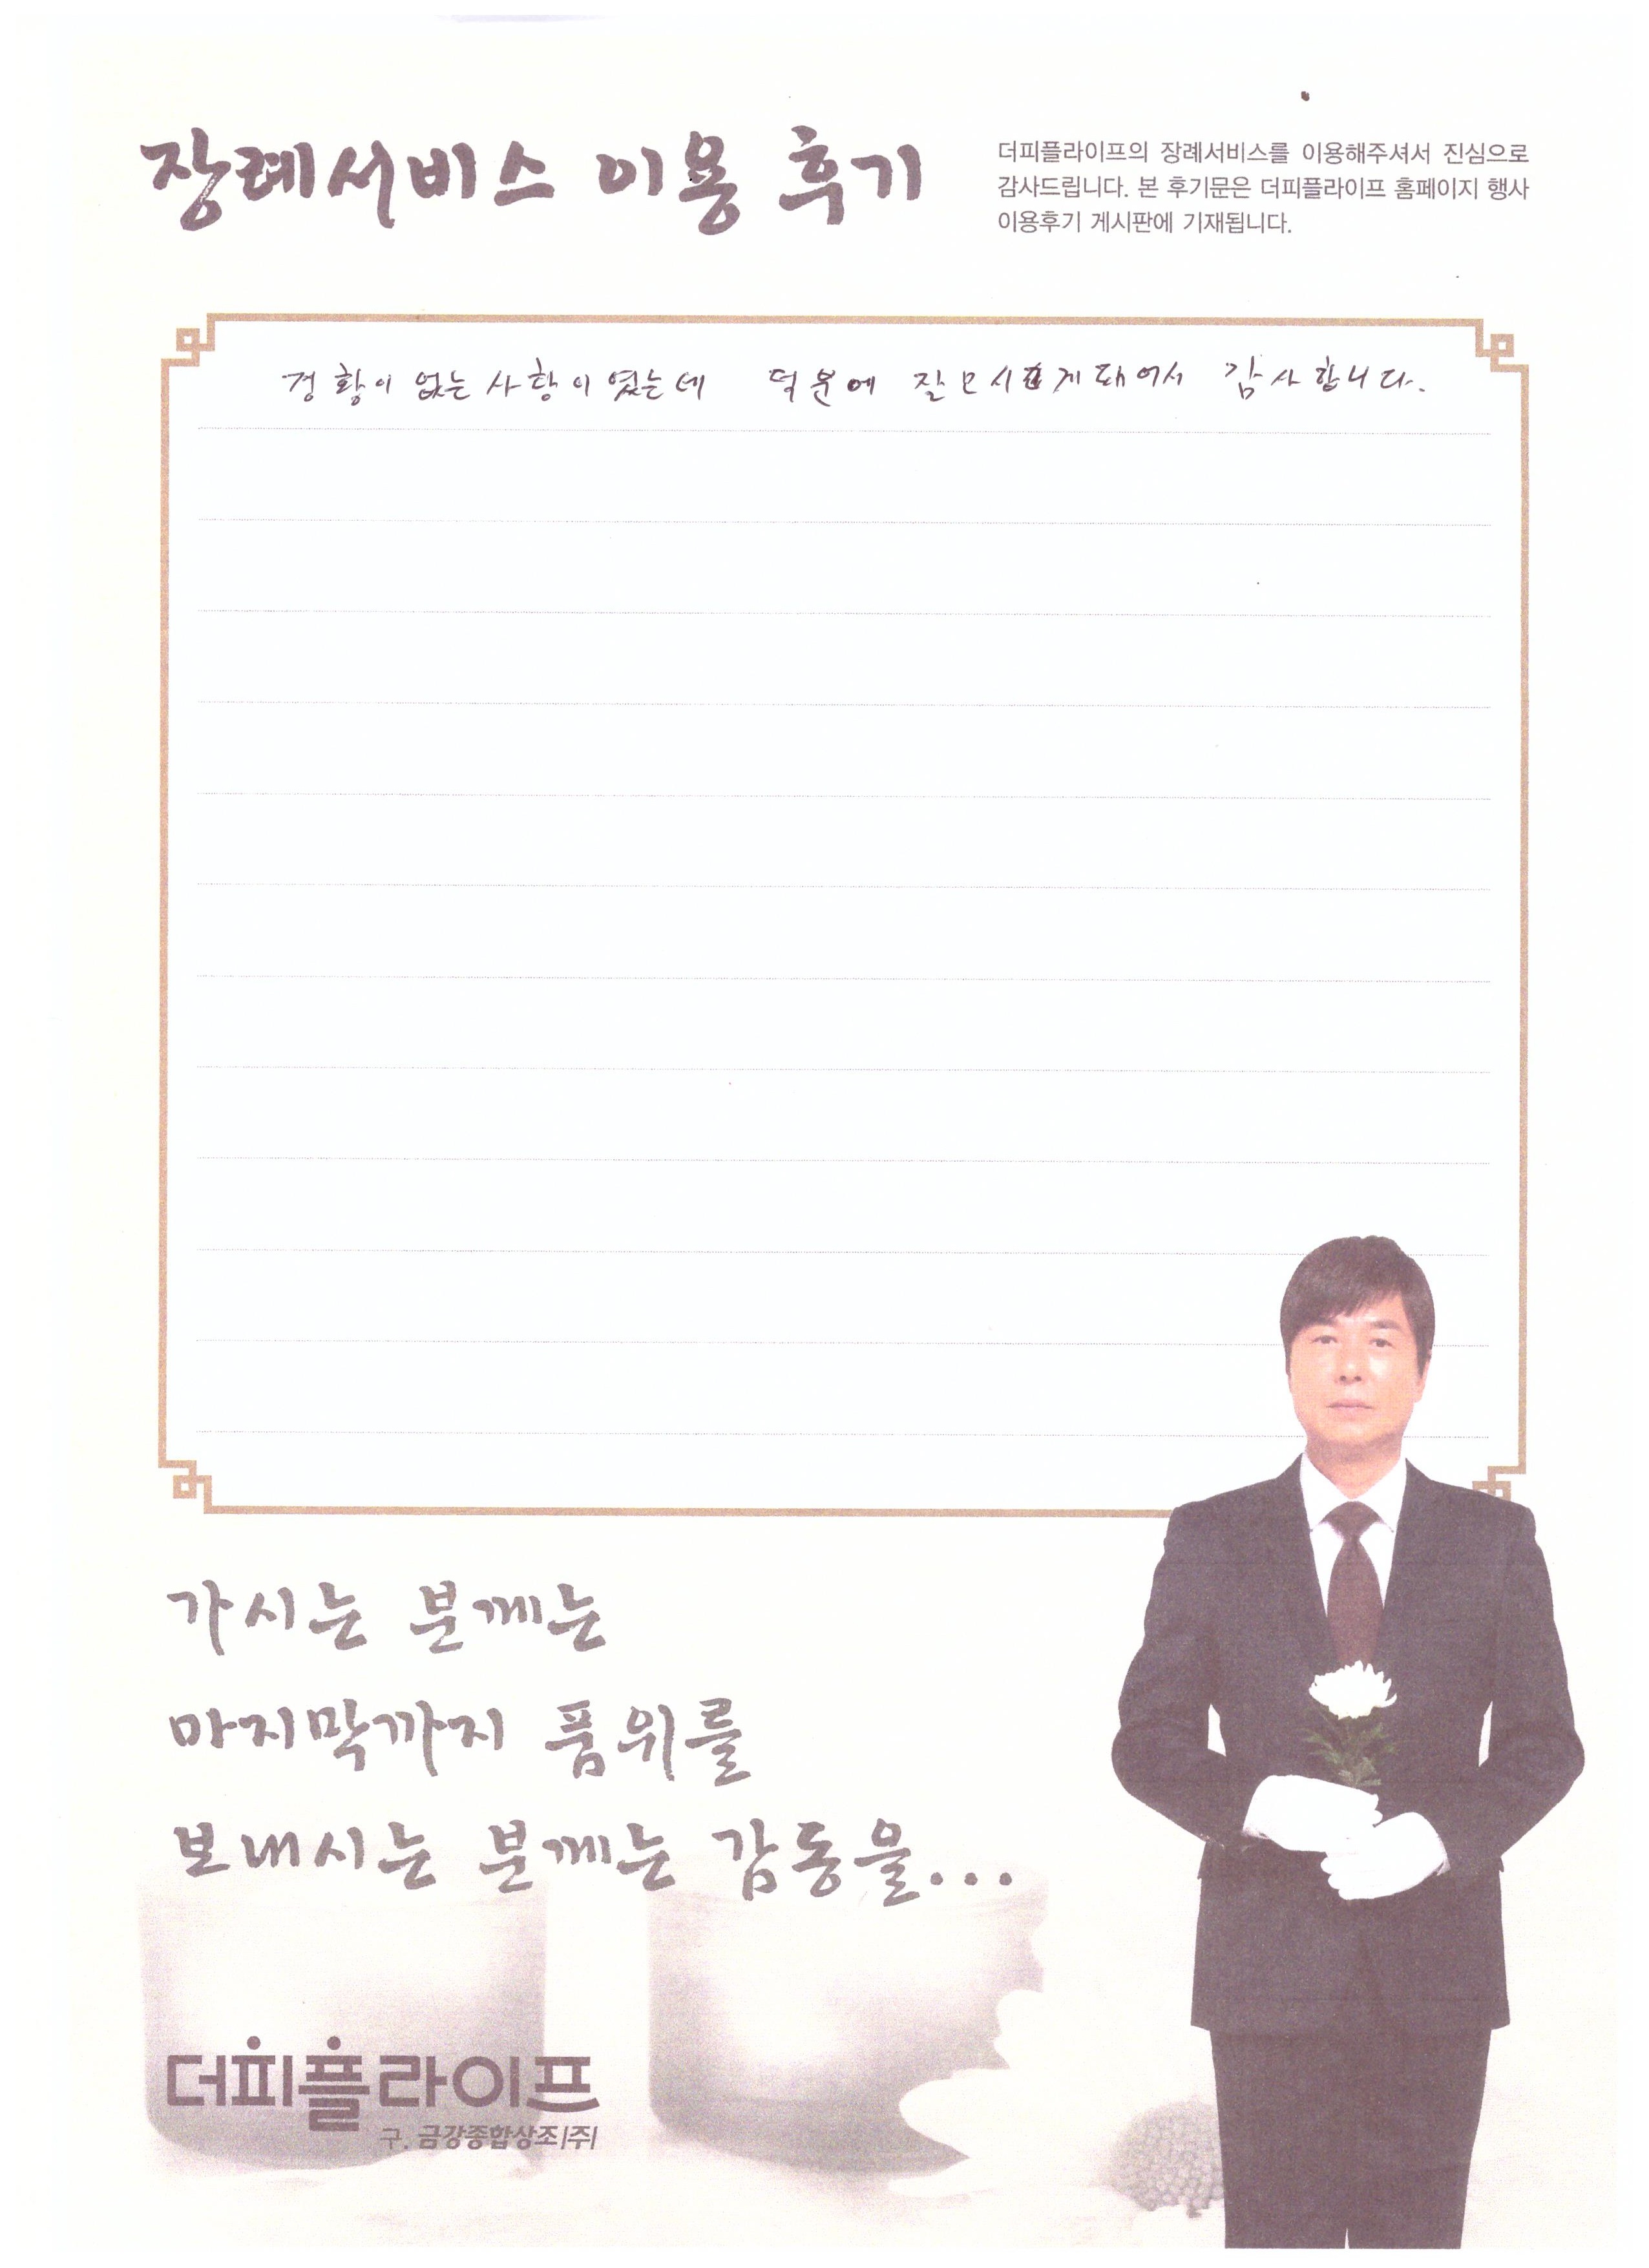 장례서비스 이용 후기
더피플라이프의 장례서비스를 이용해주셔서 진심으로
감사드립니다. 본 후기문은 더피플라이프 홈페이지 행사
이용후기 게시판에 기재됩니다.
경황이 없는 사항이 였는데 덕분에 잘 모시게 돼어서 감사합니다.
가시는 분께는
마지막까지 품위를
보내시는 분께는 감동을...
더피플라이프
구. 금강종합상조(주)